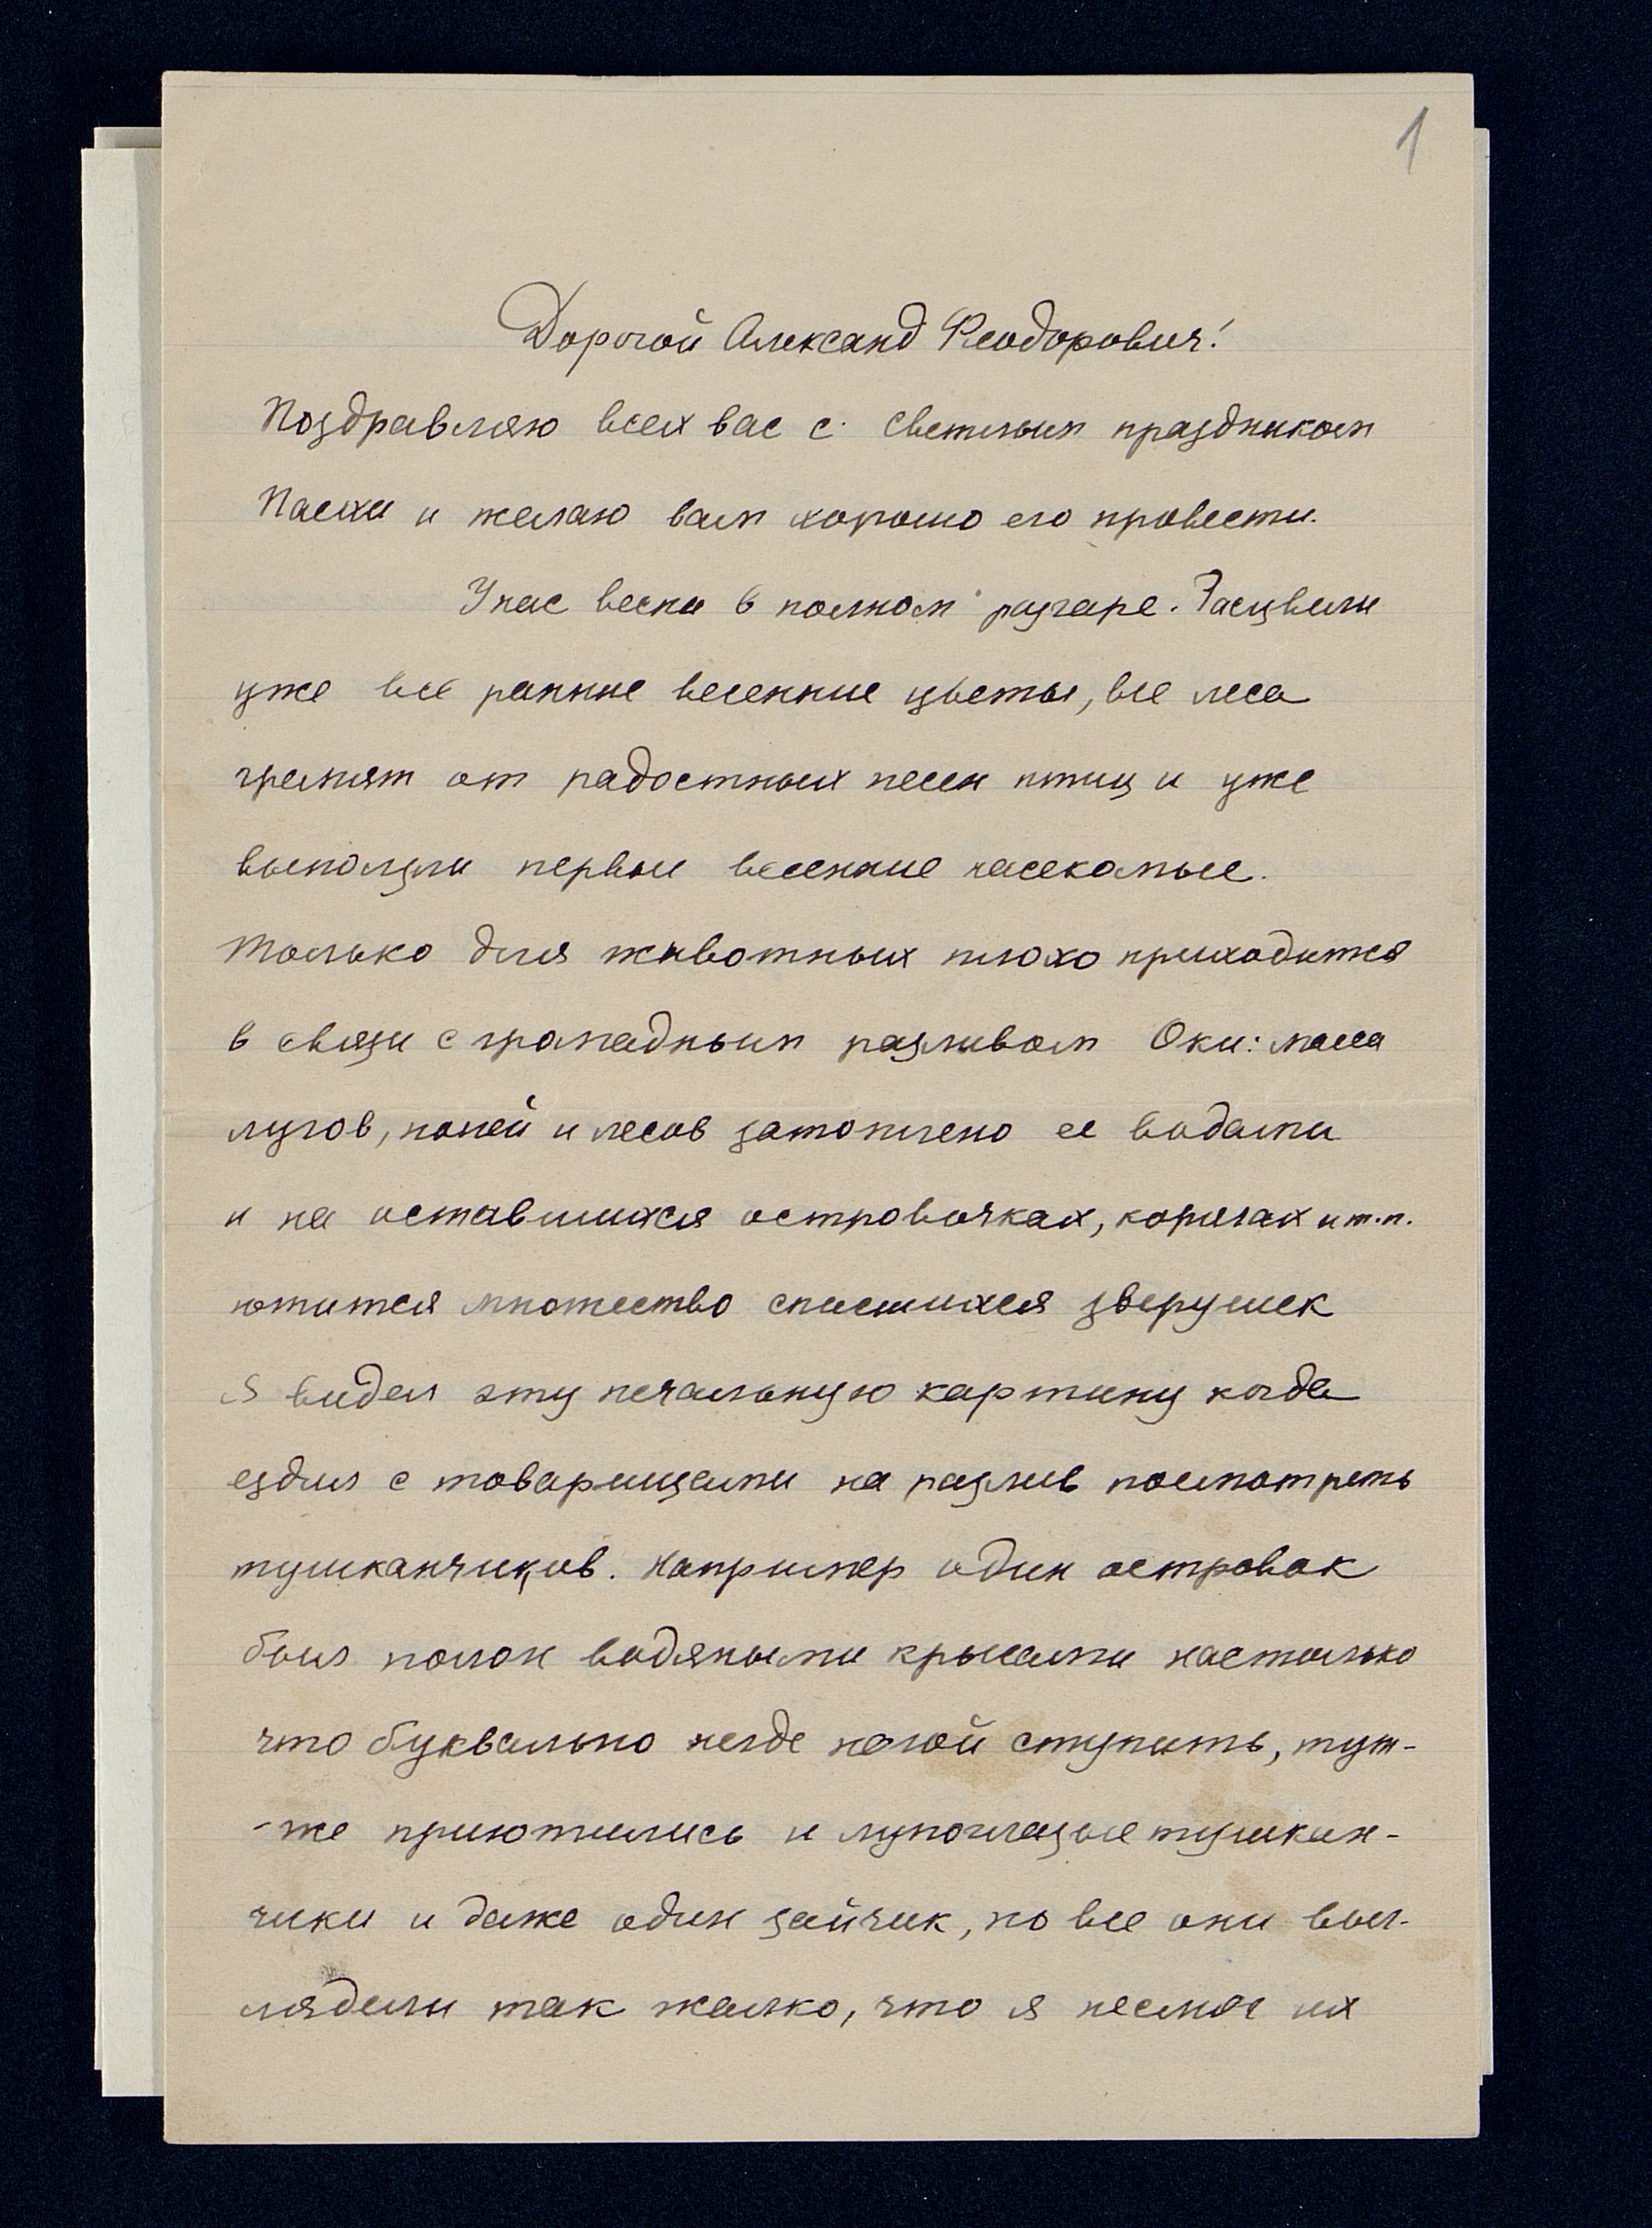 1
Дорогой Александ Феодорович!
Поздравляю всех вас с светлым праздником
Пасхи и желаю вам хорошо его провести.
У нас весна в полном разгаре. Расцвели
уже все ранние весенние цветы, все леса
гремят от радостных песен птиц и уже
выползли первые весенние насекомые.
Только для животных плохо приходится
в связи с громадным разливом Оки: масса
лугов, полей и лесов затоплено ее водами
и на оставшихся островочках, корягах и т.п.
ютится множество спасшихся зверушек
Я видел эту печальную картину когда
ездил с товарищами на разлив посмотреть
тушканчиков. Например один островок
был полон водяными крысами настолько
что буквально негде ногой ступить, тут-
-же приютились и лупоглазые тушкан-
чики и даже один зайчик, но все они выг-
лядели так жалко, что я не смог их